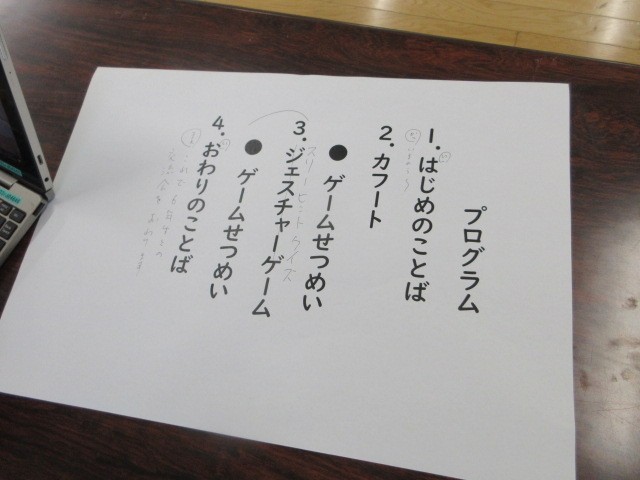 プログラム
1. はじめのことば
2. カフート
● ゲームせつめい
3. ジェスチャーゲーム
スリーヒントクイズ
● ゲームせつめい
4. おわりのことば
これで
交流会をおわります